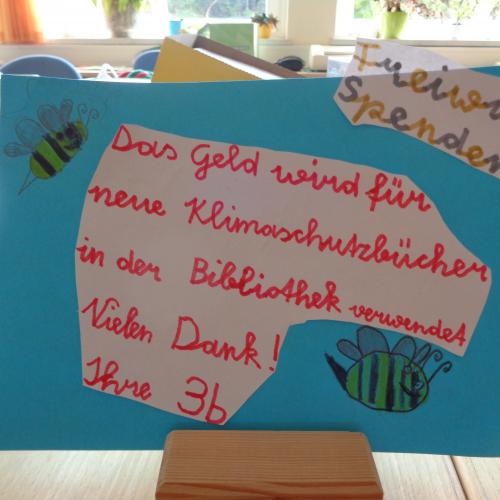 Freiw
Spenden
Das Geld wird für
neue Klimaschutzbücher
in der Bibliothek verwendet
Vielen Dank!
Ihre 3b